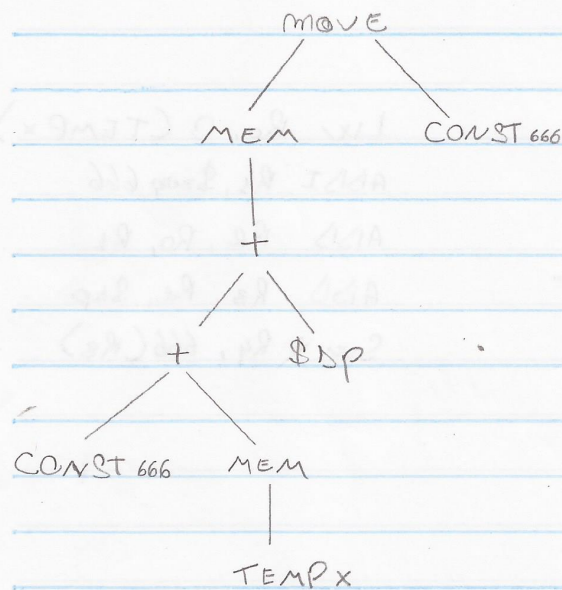 MOVE
MEM CONST 666
+
+ $Dp
CONST 666 MEM
TEMP x